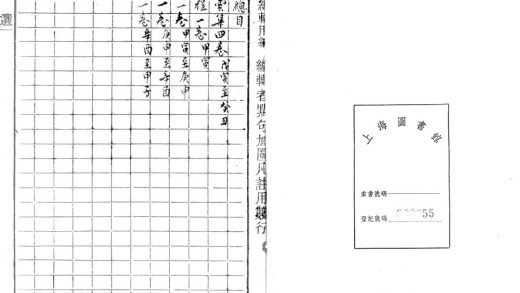 編輯者點句加圈凡註用雙行
總目
雲集四卷 戊寅至癸丑
程一卷 甲寅
一卷 甲寅至庚申
一卷 庚申至辛酉
一卷 辛酉至甲子
選
上海圖書館
索書號碼
登記號碼 55